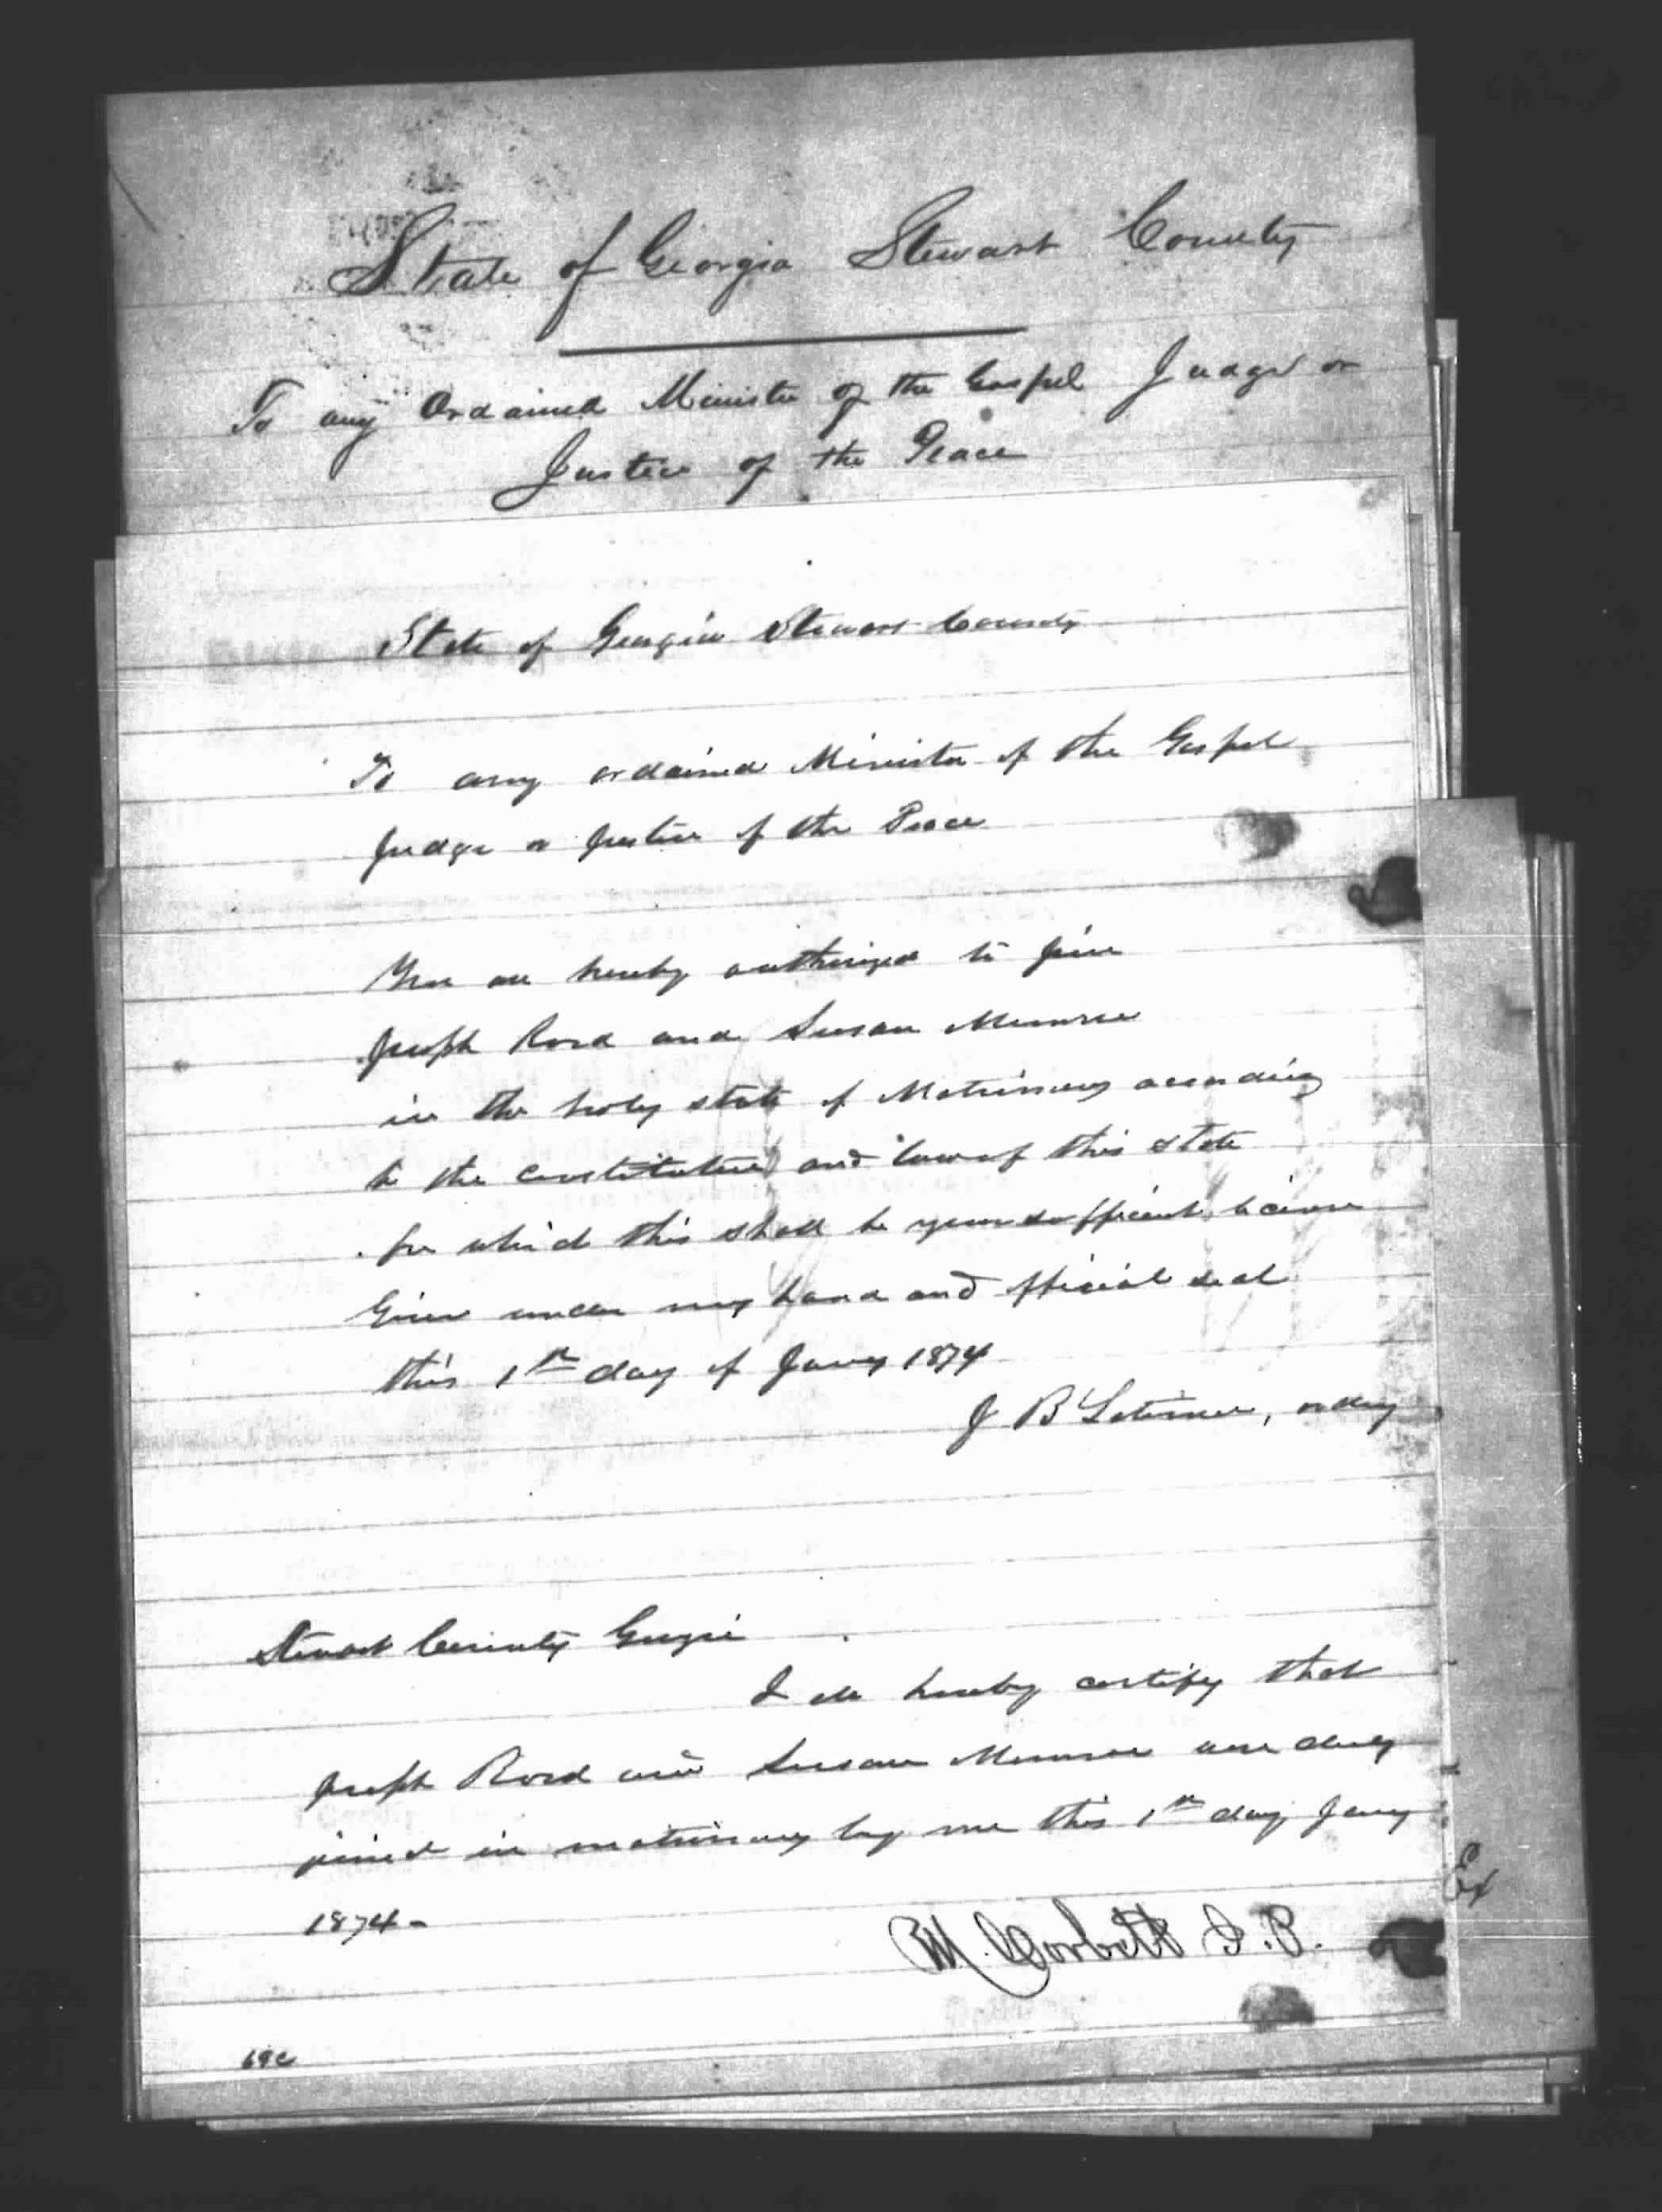 State of Georgia Stewart County
To any Ordained Minister of the Gospel Judge or
Justice of the Peace
State of Georgia Stewart County
To any ordained Minister of the Gospel
Judge or Justice of the Peace
You are hereby authorized to join
Joseph and Susan
in the holy state of Matrimony according
to the constitution and laws of this state
for which this shall be your sufficient license
Given under my hand and official seal
this 1st day of Jany 1874
J B Latimer, ordny
Stewart County Georgia
I do hereby certify that
Joseph and Susan were duly
joined in matrimony by me this 1st day Jany
1874-
M. Corbett J.P.
Ex